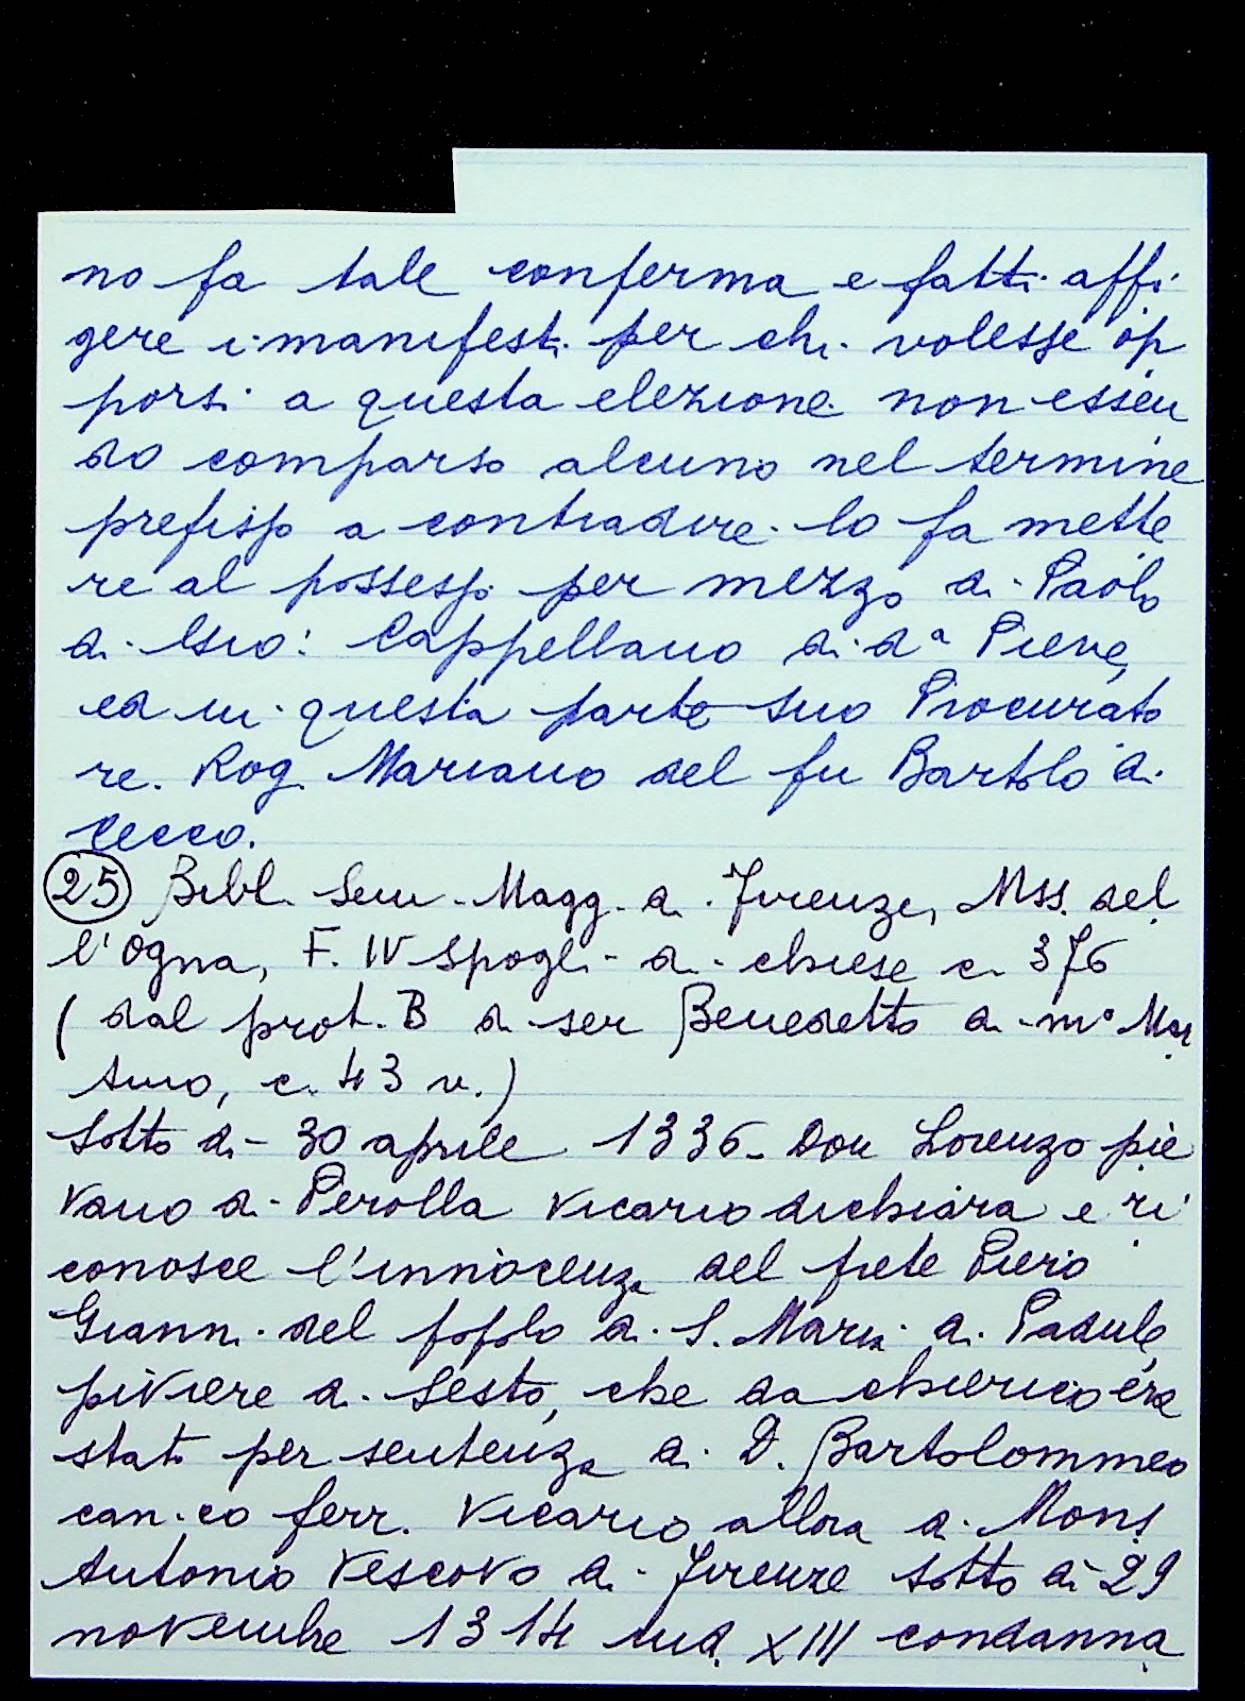 no fa tale conferma e fatti affi
gere i manifesti per chi volesse op
porsi a questa elezione non essen
do comparso alcuno nel termine
prefisso a contradire lo fa mette
re al possesso per mezzo di Paolo
di Gio: Cappellano di d.ª Pieve,
ed in questa parte suo Procurato
re. Rog. Mariano del fu Bartolo di
Cecco.
(25) Bibl. Sem. Magg. di Firenze, Mss. del
l'Ogna, F. IV Spogli di chiese c. 376
(dal prot. B di ser Benedetto di m.º Mar
tino, c. 43 v.)
Sotto di 30 aprile 1336 Don Lorenzo pie
vano di Perolla Vicario dichiara e ri
conosce l'innocenza del prete Piero
Gianni del popolo di S. Maria di Padule,
piviere di Sesto, che da chierico era
stato per sentenza di D. Bartolommeo
can.co ferr. Vicario allora di Mons.
Antonio Vescovo di Firenze sotto di 29
novembre 1314 ind. XIII condanna